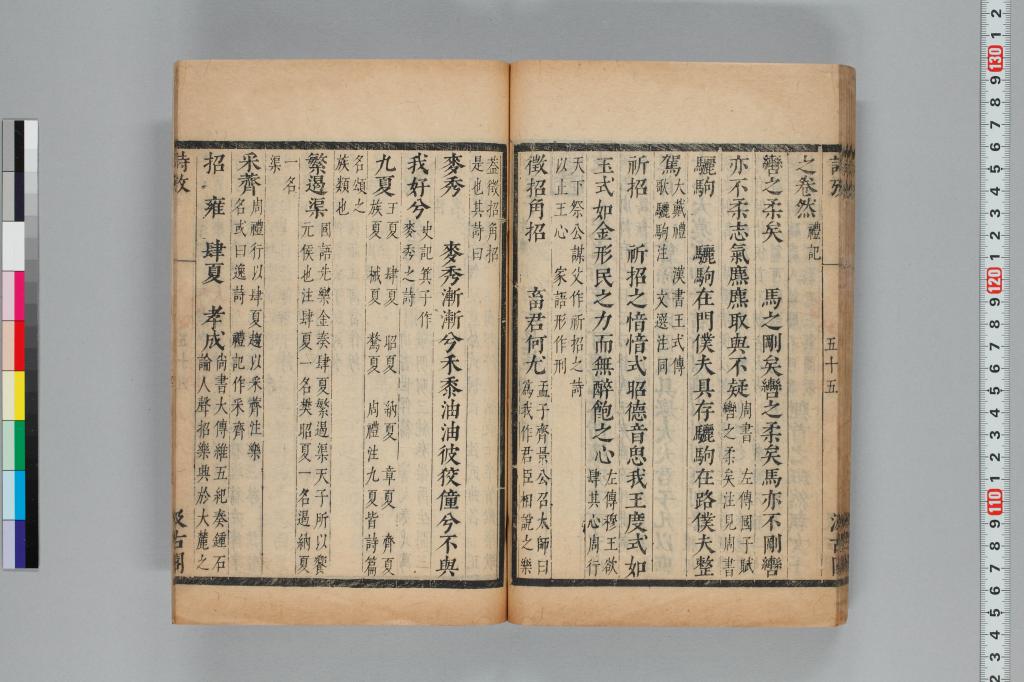 之卷然禮記
轡之柔矣　馬之剛矣轡之柔矣馬亦不剛轡
亦不柔志氣麃麃取與不疑周書　左傳國子賦
轡之柔矣注見周書
驪駒　驪駒在門僕夫具存驪駒在路僕夫整
駕大戴禮　漢書王式傳
歌驪駒注　文選注同
祈招　祈招之愔愔式昭德音思我王度式如
玉式如金形民之力而無醉飽之心左傳穆王欲
肆其心周行
天下祭公謀父作祈招之詩
以止王心　家語形作刑
徵招角招　畜君何尤孟子齊景公召太師曰
爲我作君臣相說之樂
五十五
蓋徵招角招
是也其詩曰
麥秀　麥秀漸漸兮禾黍油油彼狡僮兮不與
我好兮史記箕子作
麥秀之詩
九夏王夏　肆夏　昭夏　納夏　章夏　齊夏
族夏　祴夏　驁夏　周禮注九夏皆詩篇
名頌之
族類也
繁遏渠國語先樂金奏肆夏繁遏渠天子所以饗
元侯也注肆夏一名樊昭夏一名遏納夏
一名
渠
采薺周禮行以肆夏趨以采薺注樂
名或曰逸詩　禮記作采齊
招　雍　肆夏　孝成尚書大傳維五祀奏鍾石
論人聲招樂興於大麓之
詩攷
汲古閣